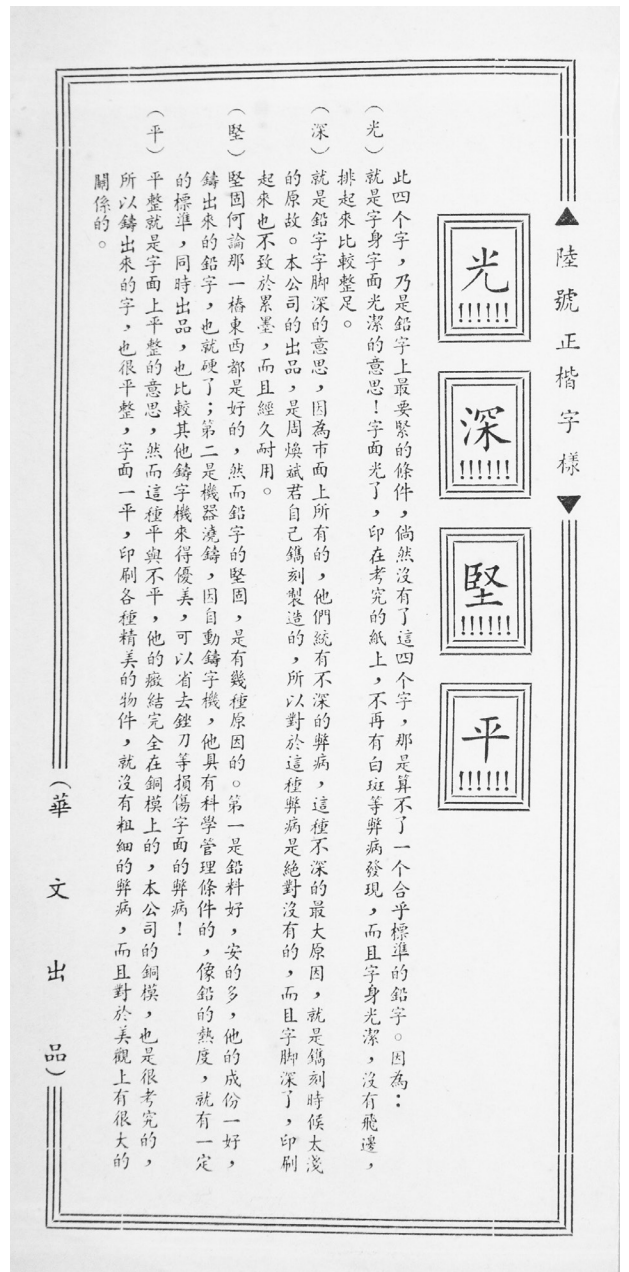 ▲陸號正楷字樣▼
光!!!!!!
深!!!!!!
堅!!!!!!
平!!!!!!
此四个字，乃是鉛字上最要緊的條件，倘然沒有了這四个字，那是算不了一个合乎標準的鉛字。因為：
（光）就是字身字面光潔的意思！字面光了，印在考究的紙上，不再有白斑等弊病發現，而且字身光潔，沒有飛邊，
排起來比較整足。
（深）就是鉛字字脚深的意思，因為市面上所有的，他們統有不深的弊病，這種不深的最大原因，就是鐫刻時候太淺
的原故。本公司的出品，是周煥斌君自己鐫刻製造的，所以對於這種弊病是絕對沒有的，而且字脚深了，印刷
起來也不致於累墨，而且經久耐用。
（堅）堅固何論那一樁東西都是好的，然而鉛字的堅固，是有幾種原因的。第一是鉛料好，安的多，他的成份一好，
鑄出來的鉛字，也就硬了；第二是機器澆鑄，因自動鑄字機，他具有科學管理條件的，像鉛的熱度，就有一定
的標準，同時出品，也比較其他鑄字機來得優美，可以省去銼刀等損傷字面的弊病！
（平）平整就是字面上平整的意思，然而這種平與不平，他的癥結完全在銅模上的，本公司的銅模，也是很考究的，
所以鑄出來的字，也很平整，字面一平，印刷各種精美的物件，就沒有粗細的弊病，而且對於美觀上有很大的
關係的。
（華文出品）